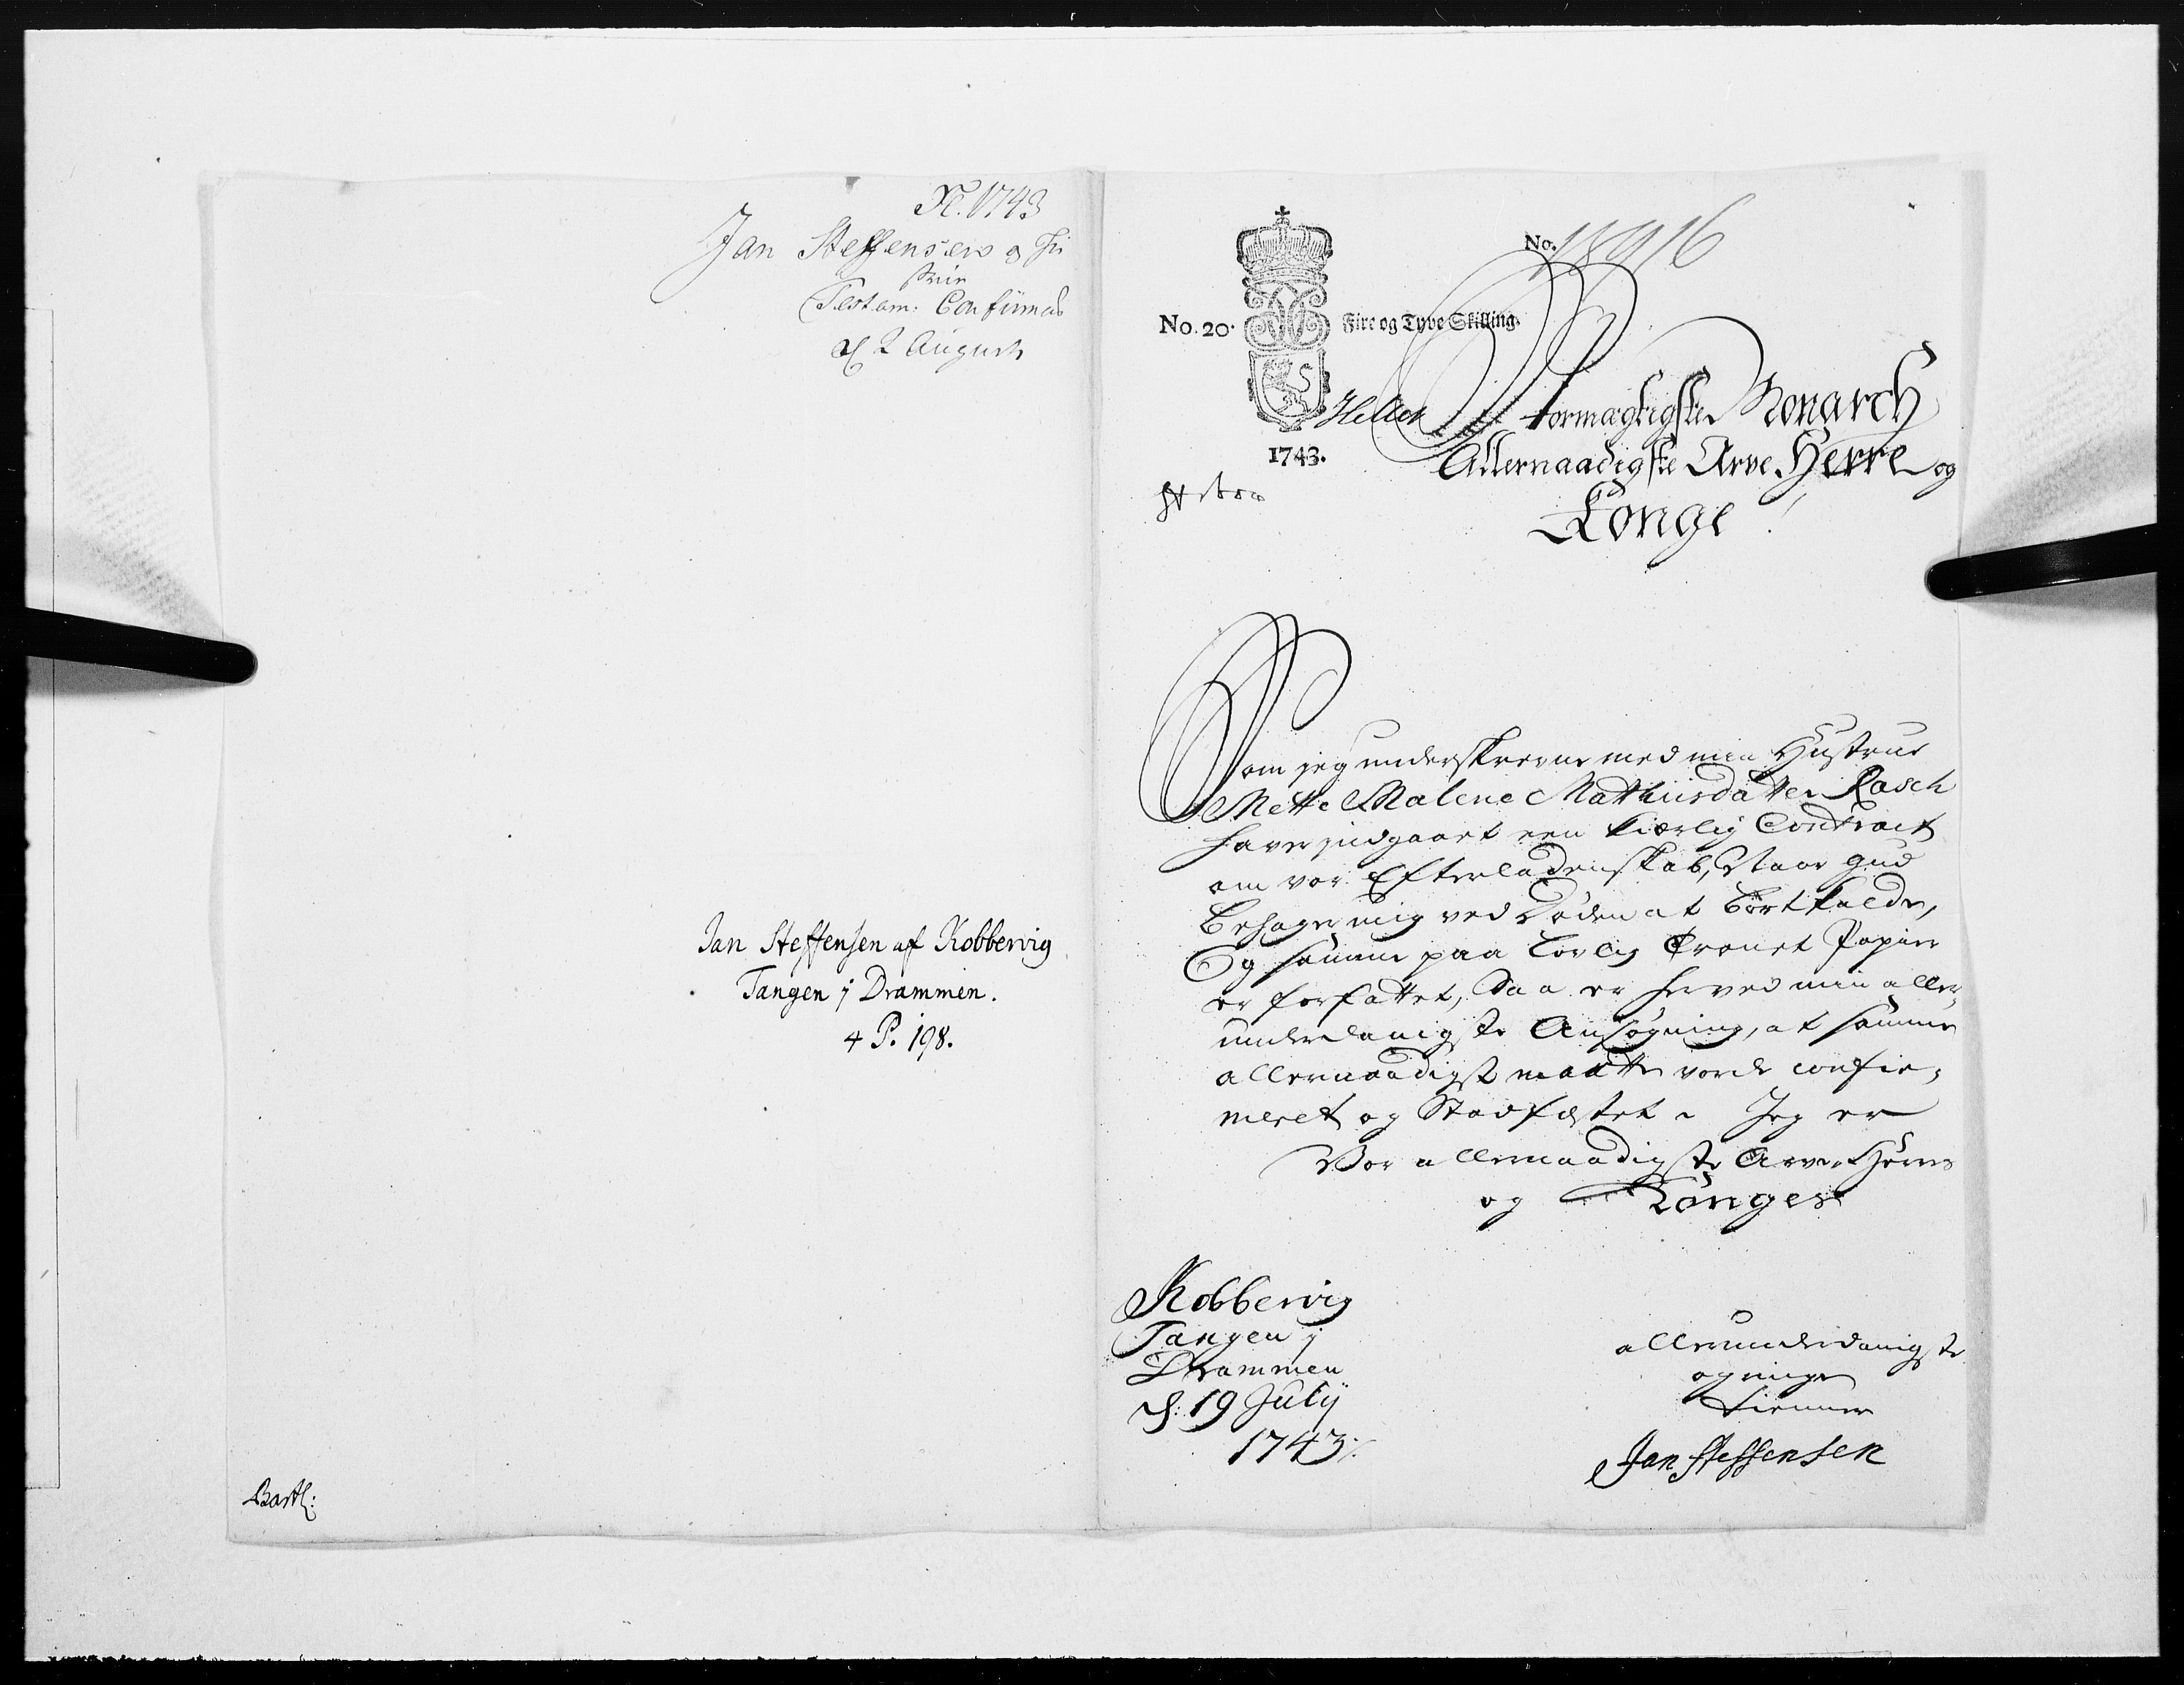 N. 1743
Jan Steffensen og Hu
strue
Testam: Confirmat:
d 2 August
Jan Steffensen af Kobbervig
Tangen j Drammen.
4 P. 198.
Bartl:
No. 18916
No. 20. Fire og Tyve Skilling.
1743.
Stormægtigste Monarch
Allernaadigste Arve Herre og
Konge!
Som jeg underskrevne med min Hustrue
Mette Malene Mathiisdatter Rasch
haver indgaaet een kierlig Contract
om vor Efterladenskab, Naar Gud
behager mig ved Døden at bortkalde,
Og samme paa lovlig Cronet Papiir
er forfattet, Saa er herved min aller,,
underdanigste Ansøgning, at samme
allernaadigst maatte vorde confir,,
meret og Stadfæstet. Jeg er
Vor allernaadigste Arve Herres
og Konges
Kobbervig
Tangen j
Drammen
d: 19 July
1743
allerunderdanigste
ringe
tienner
Jan Steffensen